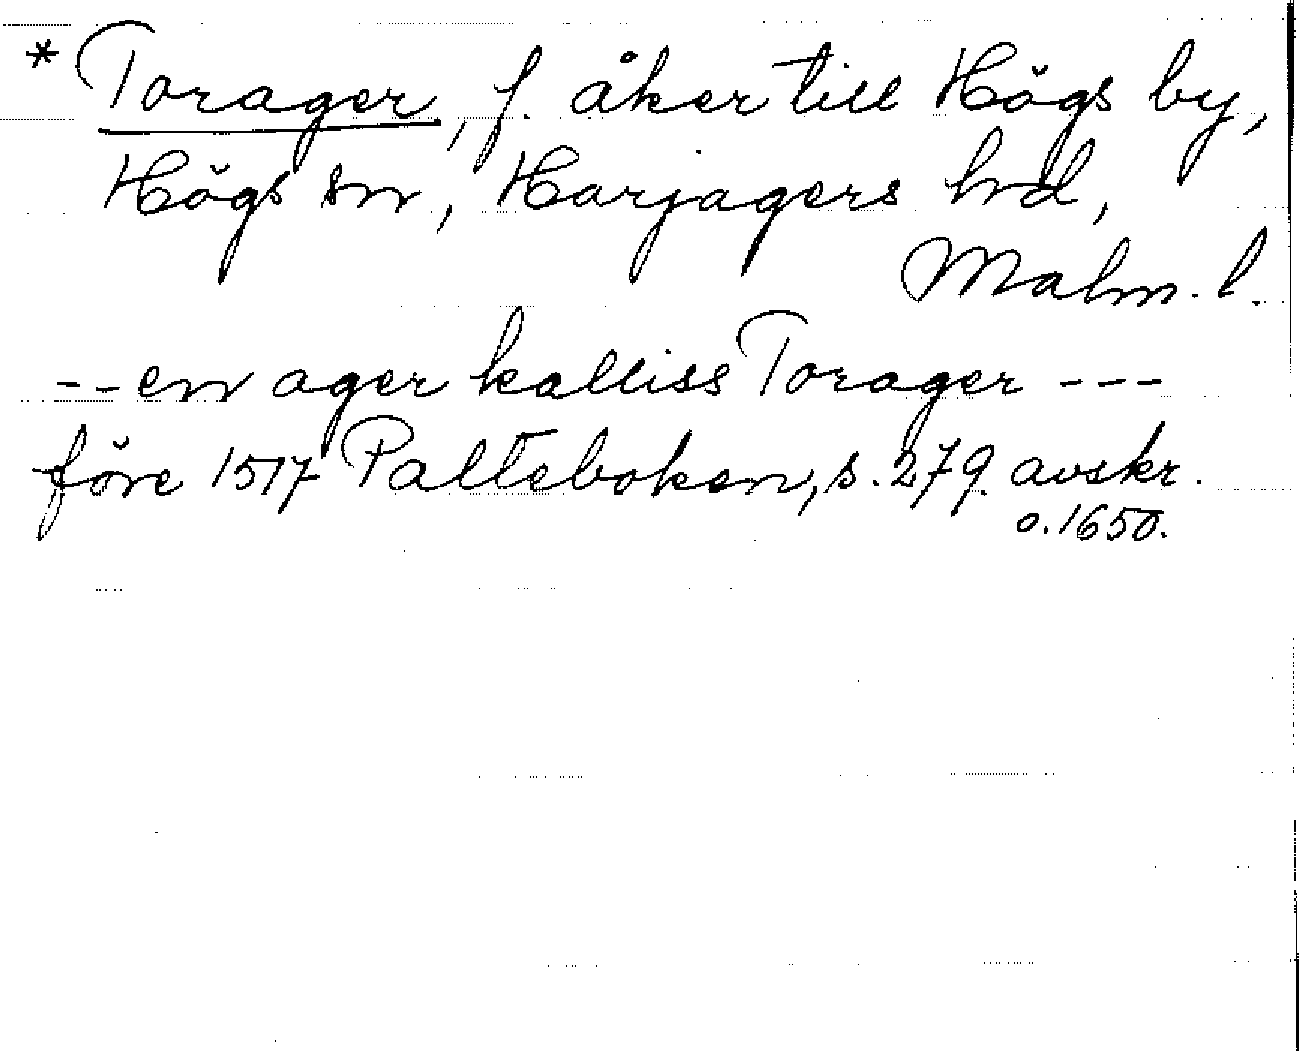 * Torager, f. åker till Högs by,
Högs sn, Harjagers hd,
Malm. l.
-- en ager kalliss Torager ---
före 1517 Palteboken, s. 279 avskr.
o. 1650.